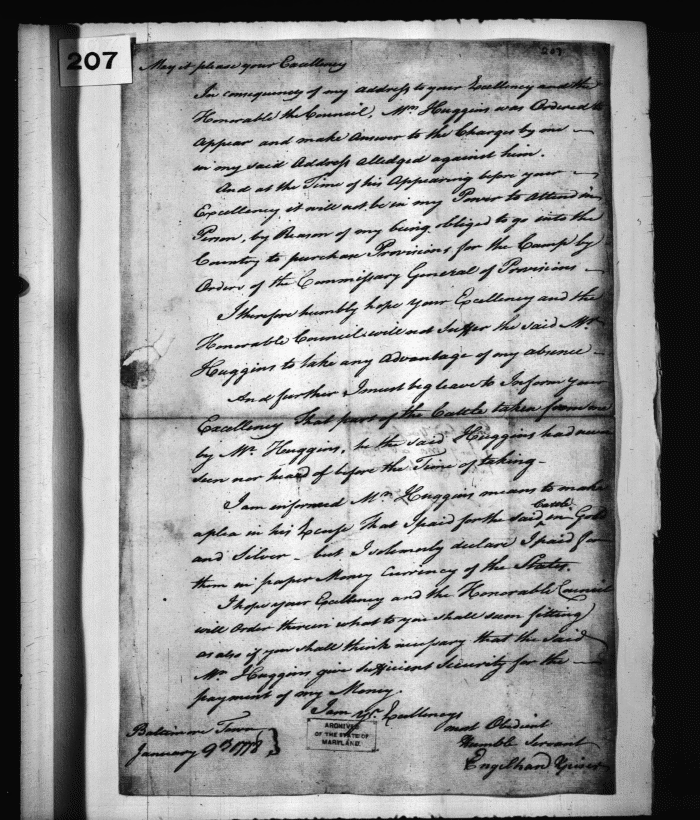 207
207
May it please your Excellency
In consequency of my Address to your Excellency and the
Honorable the Council, Mr. Huggins was Ordered to
Appear and make Answer to the Charges by me
in my said Address alledged against him.
And at the Time of his Appearing before your
Excellency it will not be in my Power to attend in
Person, by Reason of my being obliged to go into the
Country to purchase Provisions for the Camp by
Order of the Commissary General of Provisions
I therefore humbly hope your Excellency and the
Honorable Council will not suffer the said Mr.
Huggins to take any Advantage of my absence
And further I must beg leave to Inform your
Excellency That part of the Cattle taken from me
by Mr. Huggins, he the said Huggins had never
seen nor heard of before the Time of taking.
I am informed Mr. Huggins means to make
a plea in his Excuse That I paid for the said Cattle in Gold
and Silver - but I solemnly declare I paid for
them in paper Money Currency of the States.
I hope your Excellency and the Honorable Council
will Order therein what to you shall seem fitting
as also if you shall think necessary that the said
Mr. Huggins give sufficient Security for the
payment of my Money.
I am Yr. Excellencys
most Obedient
Humble Servant
Engelhard Yeiser
Baltimore Town
January 9th 1778
ARCHIVES
OF THE STATE OF
MARYLAND